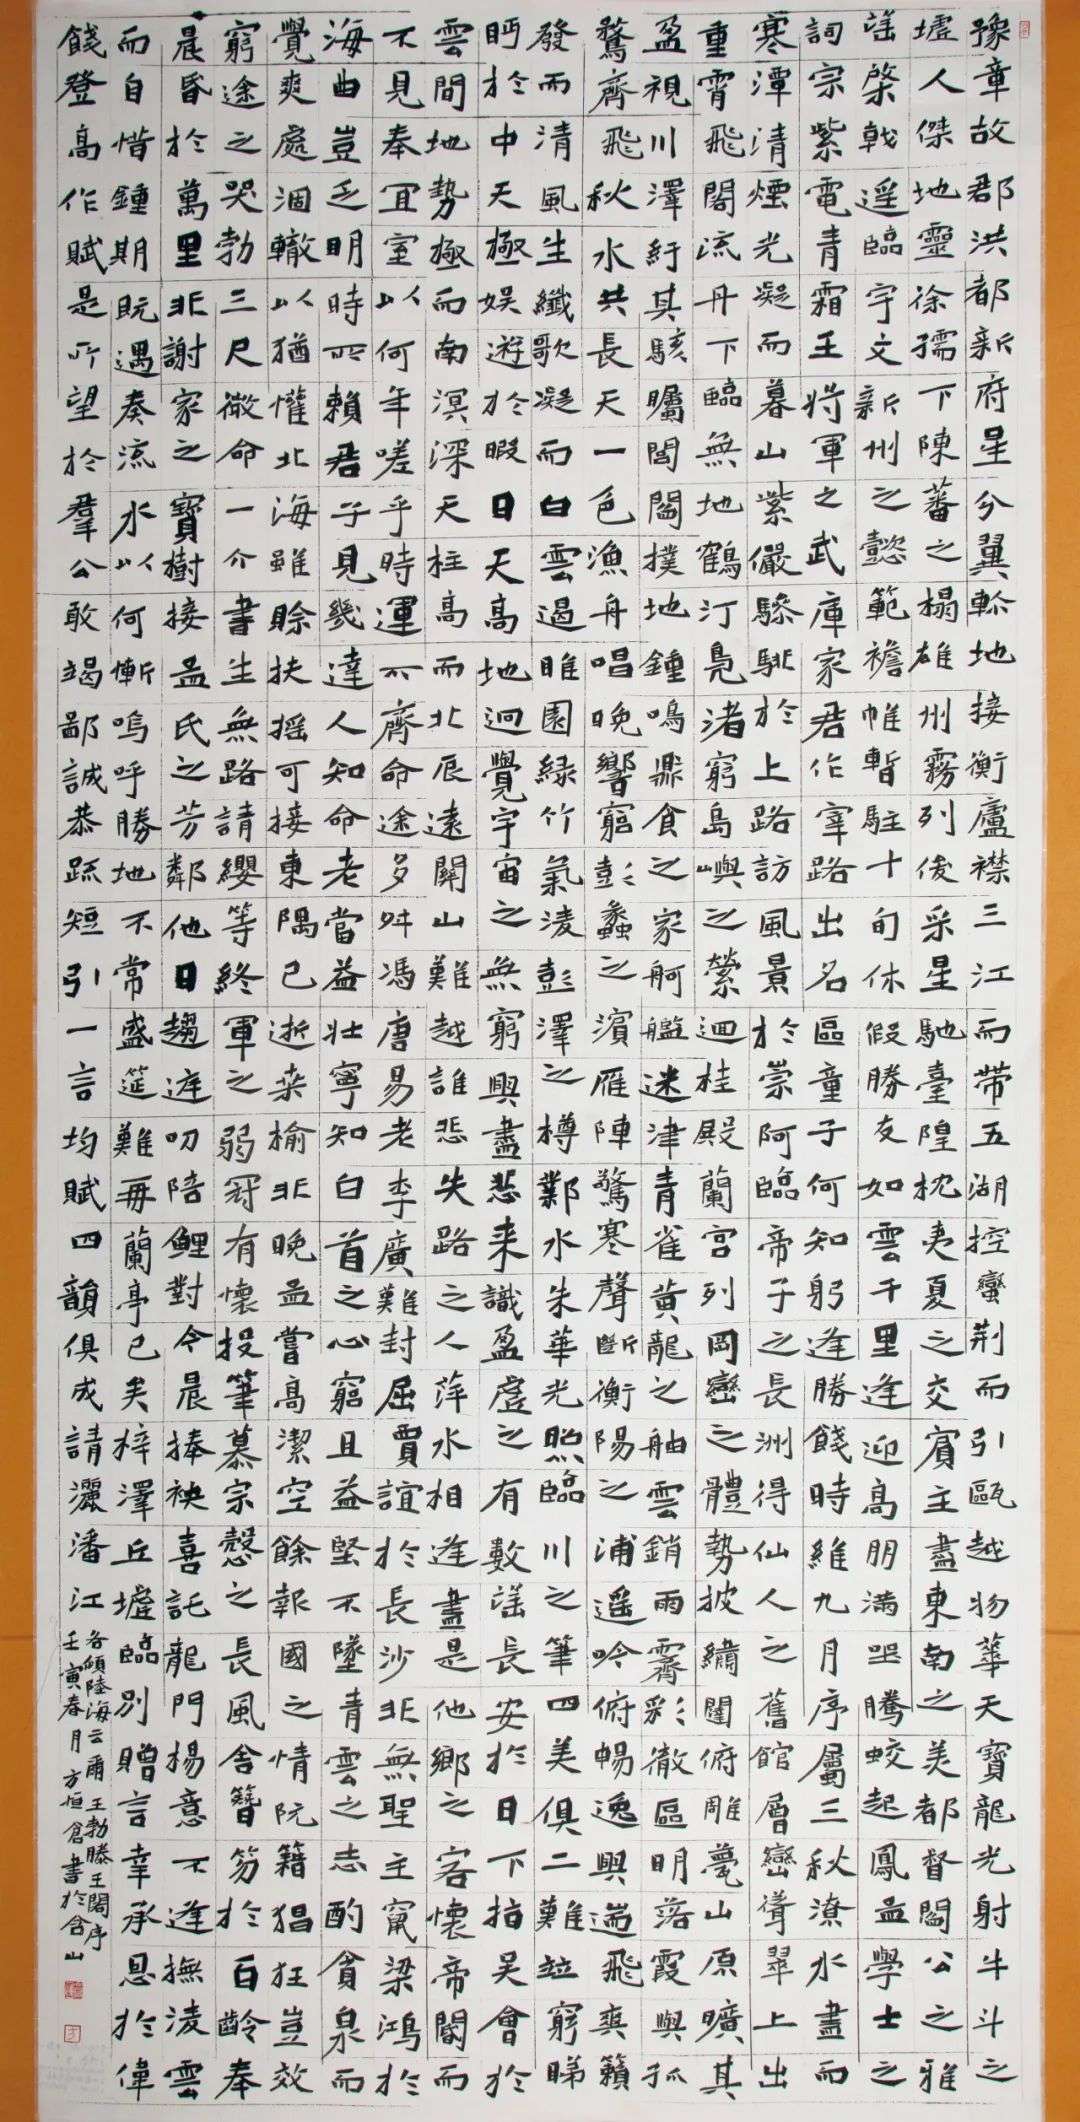 豫章故郡洪都新府星分翼軫地接衡廬襟三江而帶五湖控蠻荆而引甌越物華天寶龍光射牛斗之
墟人傑地靈徐孺下陳蕃之榻雄州霧列俊采星馳臺隍枕夷夏之交賓主盡東南之美都督閻公之雅
謡棨戟遥臨宇文新州之懿範襜帷暫駐十旬休假勝友如雲千里逢迎高朋滿坐騰蛟起鳳孟學士之
詞宗紫電青霜王將軍之武庫家君作宰路出名區童子何知躬逢勝餞時維九月序屬三秋潦水盡而
寒潭清煙光凝而暮山紫儼驂騑於上路訪風景於崇阿臨帝子之長洲得仙人之舊館層巒聳翠上出
重霄飛閣流丹下臨無地鶴汀鳧渚窮島嶼之縈迴桂殿蘭宫列岡巒之體勢披繡闥俯雕甍山原曠其
盈視川澤紆其駭矚閭閻撲地鍾鳴鼎食之家舸艦迷津青雀黄龍之舳雲銷雨霽彩徹區明落霞與孤
鶩齊飛秋水共長天一色漁舟唱晚響窮彭蠡之濱雁陣驚寒聲斷衡陽之浦遥吟俯暢逸興遄飛爽籟
發而清風生纖歌凝而白雲遏睢園緑竹氣凌彭澤之樽鄴水朱華光照臨川之筆四美俱二難並窮睇
眄於中天極娱遊於暇日天高地迥覺宇宙之無窮興盡悲来識盈虚之有數望長安於日下指吴會於
雲間地勢極而南溟深天柱高而北辰遠關山難越誰悲失路之人萍水相逢盡是他鄉之客懷帝閽而
不見奉宣室以何年嗟乎時運不齊命途多舛馮唐易老李廣難封屈賈誼於長沙非無聖主竄梁鴻於
海曲豈乏明時所賴君子見幾達人知命老當益壯寧知白首之心窮且益堅不墜青雲之志酌貪泉而
覺爽處涸轍以猶懽北海雖賒扶摇可接東隅已逝桑榆非晚孟嘗高潔空餘報國之情阮籍猖狂豈效
窮途之哭勃三尺微命一介書生無路請纓等終軍之弱冠有懷投筆慕宗慤之長風舍簪笏於百齡奉
晨昏於萬里非謝家之寶樹接孟氏之芳鄰他日趨庭叨陪鯉對今晨捧袂喜託龍門楊意不逢撫凌雲
而自惜鍾期既遇奏流水以何慚嗚呼勝地不常盛筵難再蘭亭已矣梓澤丘墟臨别贈言幸承恩於偉
餞登高作賦是所望於羣公敢竭鄙誠恭疏短引一言均賦四韻俱成請灑潘江
各傾陸海云爾王勃滕王閣序
壬寅春月方恒倉書於含山